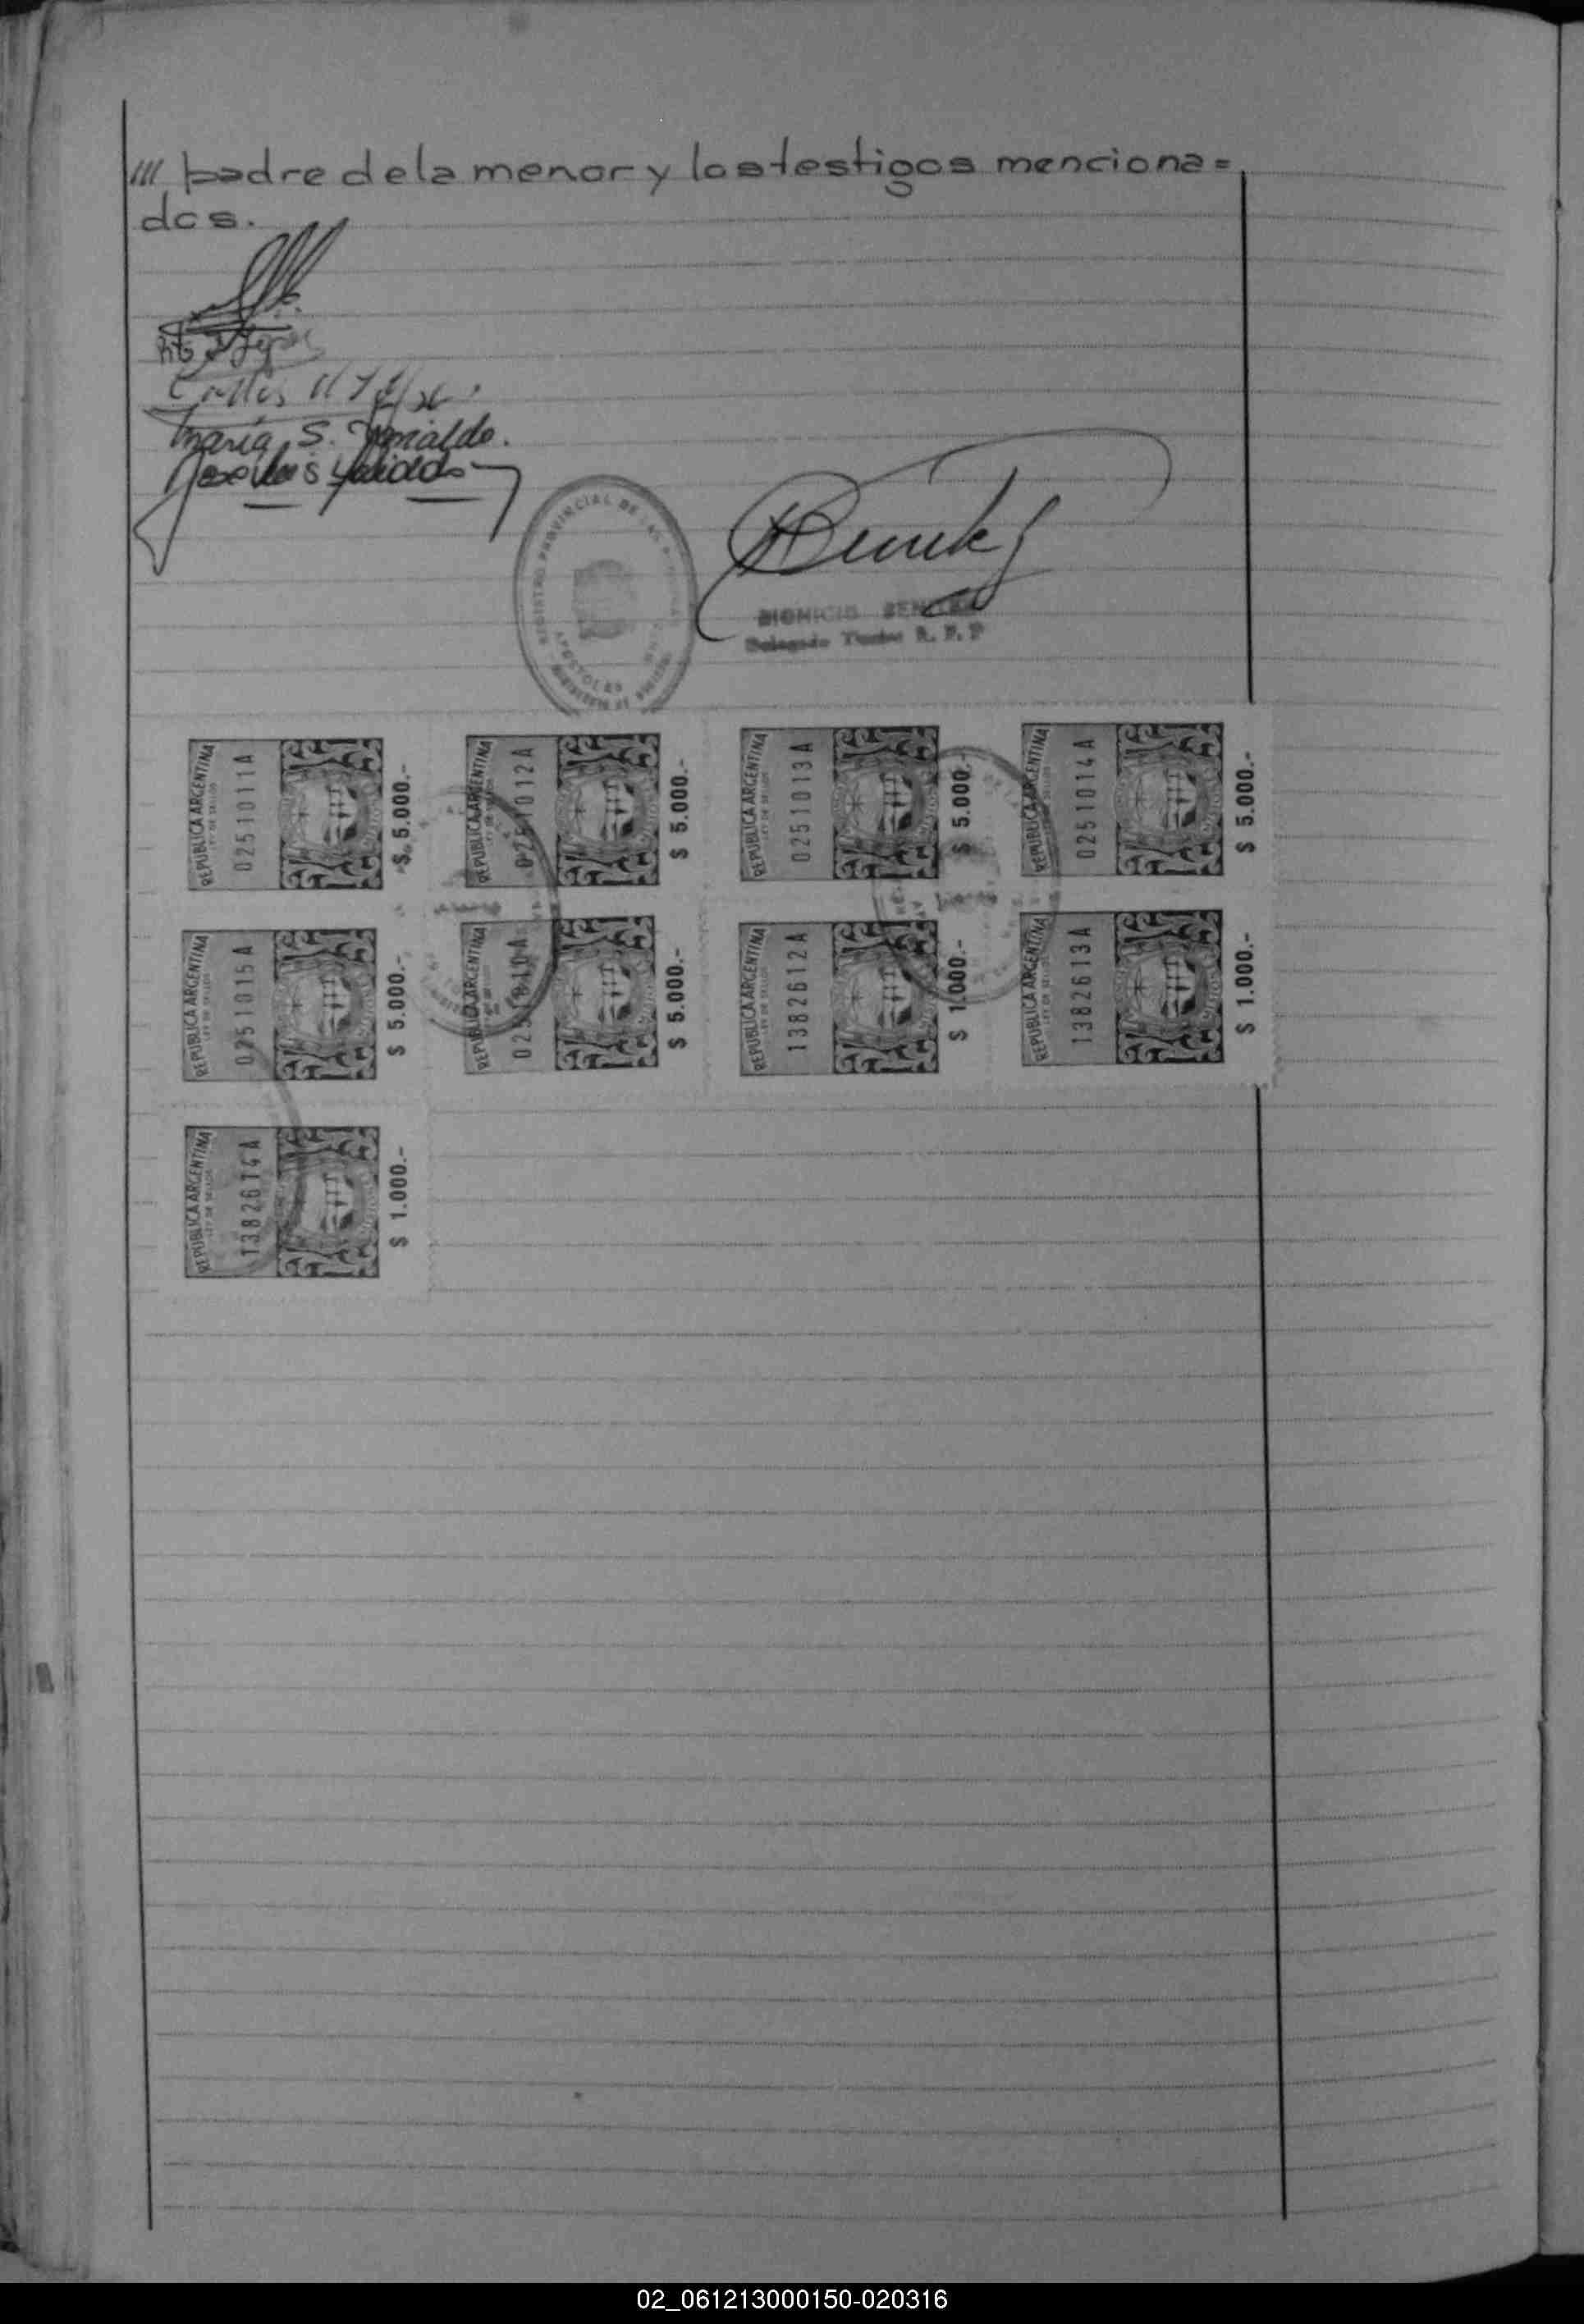 /// padre de la menor y los testigos menciona=
dos.
María S.
José Luis
REGISTRO PROVINCIAL DE LAS PERSONAS
APOSTOLES
DIONICIO BENITEZ
Delegado Titular R. P. P
REPUBLICA ARGENTINA
LEY DE SELLOS
0251011A
$ 5.000.-
REPUBLICA ARGENTINA
LEY DE SELLOS
0251012A
$ 5.000.-
REPUBLICA ARGENTINA
LEY DE SELLOS
0251013A
$ 5.000.-
REPUBLICA ARGENTINA
LEY DE SELLOS
0251014A
$ 5.000.-
REPUBLICA ARGENTINA
LEY DE SELLOS
0251015A
$ 5.000.-
REPUBLICA ARGENTINA
$ 5.000.-
REPUBLICA ARGENTINA
LEY DE SELLOS
1382612A
$ 1.000.-
REPUBLICA ARGENTINA
LEY DE SELLOS
1382613A
$ 1.000.-
REPUBLICA ARGENTINA
LEY DE SELLOS
1382614A
$ 1.000.-
02_061213000150-020316